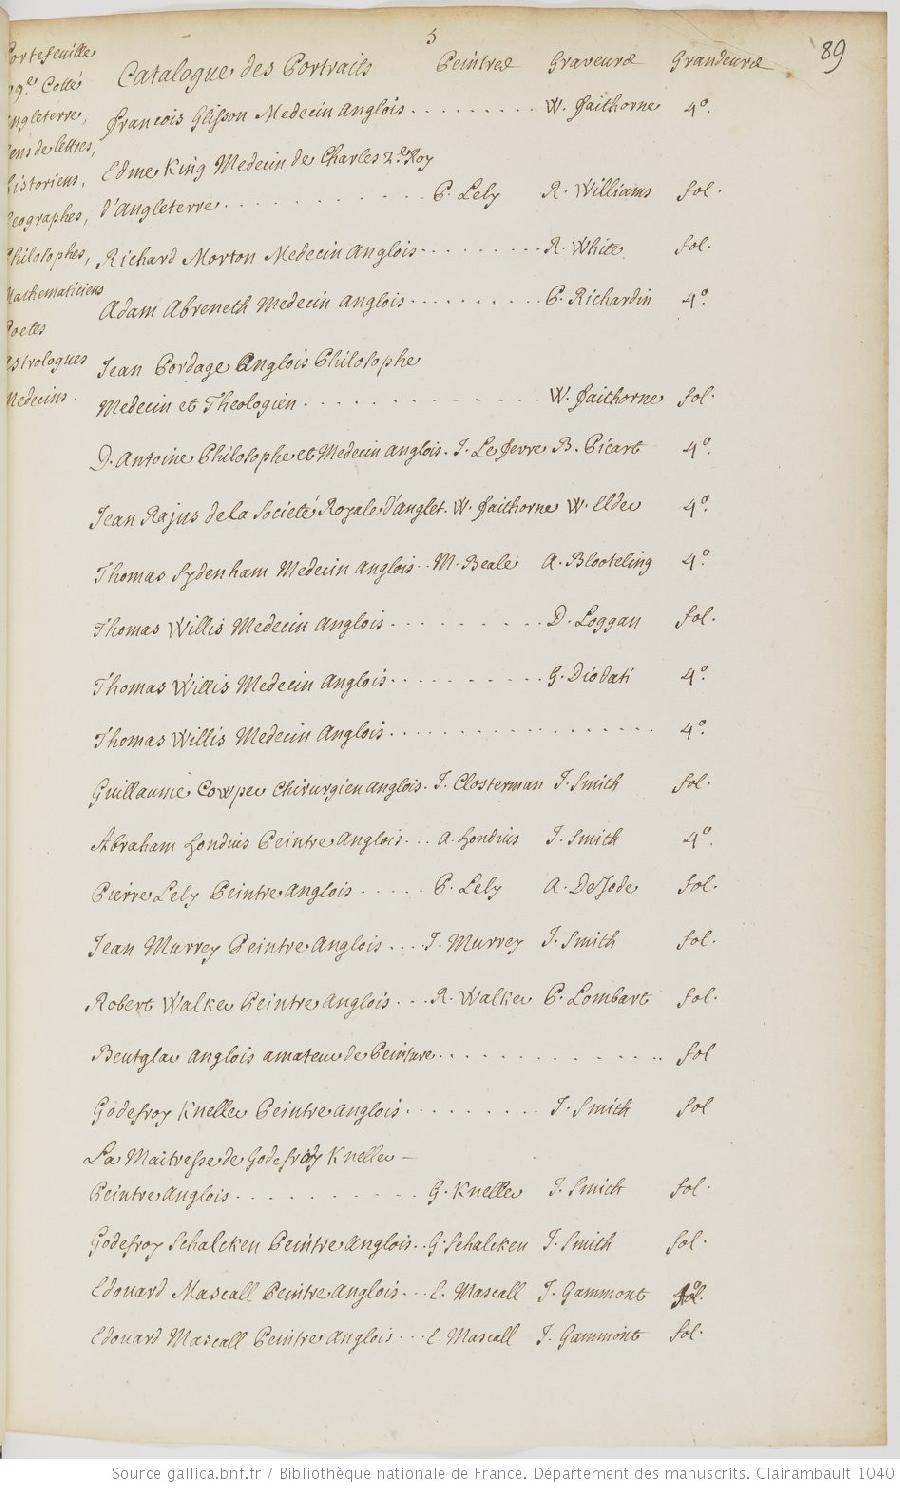 5
89
Portefeuille
Collé
Angleterre,
Gens de lettres,
Historiens,
Geographes,
Philosophes,
Mathematiciens
Poetes
Astrologues
Medecins.
Catalogue des Portraits Peintres Graveurs Grandeurs
François Glisson Medecin Anglois . . . . . . . . . W. Faithorne 4º.
Edme King Medecin de Charles 2.e Roy
d'Angleterre . . . . . . . . . . . P. Lely R. Williams fol.
Richard Morton Medecin Anglois . . . . . . . . . R. White fol.
Adam Abreneth Medecin Anglois . . . . . . . . . . P. Richardin 4º.
Jean Pordage Anglois Philosophe
Medecin et Theologien . . . . . . . . . . . . . W. Faithorne fol.
D. Antoine Philosophe et Medecin Anglois. J. Le Fevre B. Picart 4º.
Jean Rajus de la Societé Royale d'Anglet. W. Faithorne W. Elder 4º.
Thomas Sydenham Medecin Anglois . . M. Beale A. Blooteling 4º.
Thomas Willis Medecin Anglois . . . . . . . . . D. Loggan fol.
Thomas Willis Medecin Anglois . . . . . . . . . G. Diodati 4º.
Thomas Willis Medecin Anglois . . . . . . . . . . . . . . . 4º.
Guillaume Cowper Chirurgien Anglois. J. Closterman J. Smith fol.
Abraham Hondius Peintre Anglois . . . A. Hondius J. Smith 4º.
Pierre Lely Peintre Anglois . . . . . P. Lely A. De Jode fol.
Jean Murrey Peintre Anglois . . . . J. Murrey J. Smith fol.
Robert Walker Peintre Anglois . . . R. Walker P. Lombart fol.
Beutglar Anglois amateur de Peinture . . . . . . . . . . . . . . fol
Godefroy Kneller Peintre Anglois . . . . . . . . J. Smith fol
La Maitresse de Godefroy Kneller –
Peintre Anglois . . . . . . . . . . . G. Kneller J. Smith fol.
Godefroy Schalcken Peintre Anglois . . G. Schalcken J. Smith fol.
Edouard Mascall Peintre Anglois . . . E. Mascall J. Gammont fol.
Edouard Mascall Peintre Anglois . . . E Mascall J. Gammont fol.
Source gallica.bnf.fr / Bibliothèque nationale de France. Département des manuscrits. Clairambault 1040